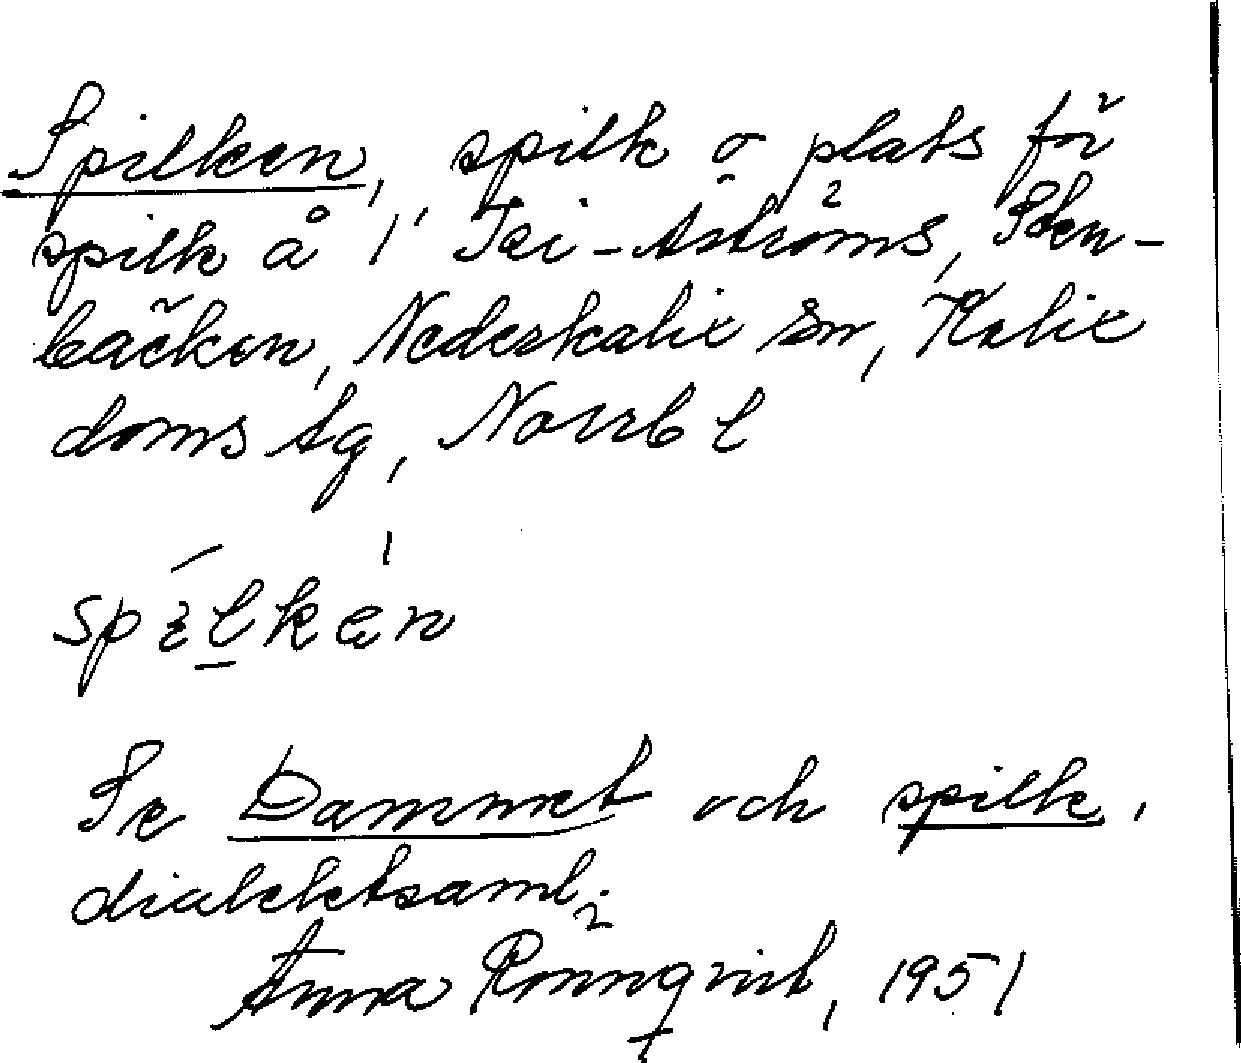 Spilken, spilk o plats för
spilk å i Tei-Åströms, Sten-
bäcken, Nederkalix sn, Kalix
doms tg, Norrb l
Se Dammet och spilk,
dialektsaml.
Anna Rönnqvist, 1951